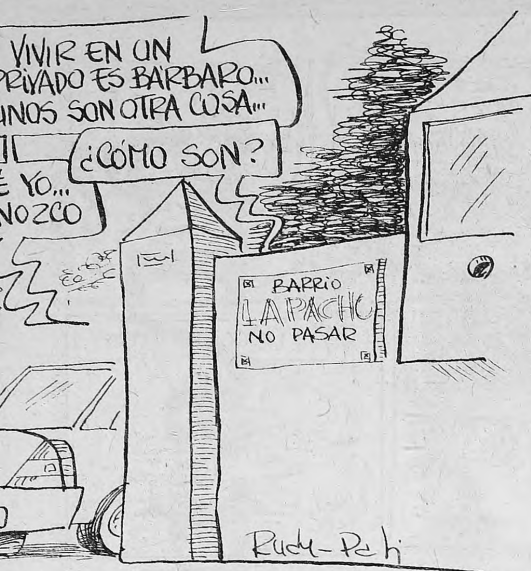 VIVIR EN UN
PRIVADO ES BÁRBARO...
SON OTRA COSA...
¿CÓMO SON?
YO...
BARRIO
LAPACHO
NO PASAR
Rudy-Pati